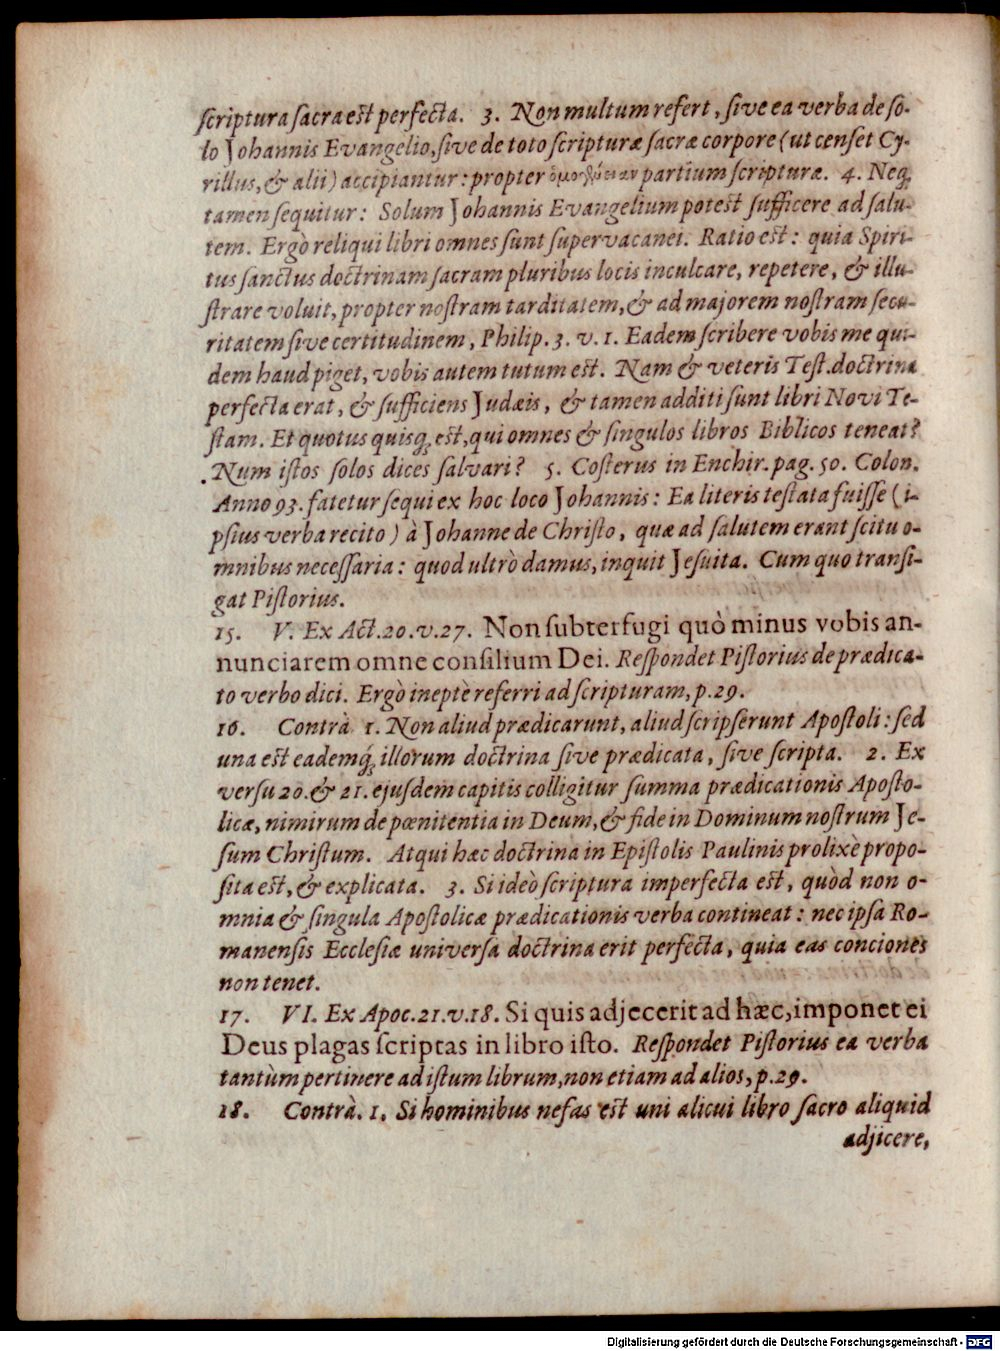 scriptura sacra est perfecta. 3. Non multum refert, sive ea verba de so-
lo Johannis Evangelio, sive de toto scripturæ sacræ corpore (ut censet Cy-
rillus, & alii) accipiantur: propter partium scripturæ. 4. Neq;
tamen sequitur: Solum Johannis Evangelium potest sufficere ad salu-
tem. Ergò reliqui libri omnes sunt supervacanei. Ratio est: quia Spiri-
tus sanctus doctrinam sacram pluribus locis inculcare, repetere, & illu-
strare voluit, propter nostram tarditatem, & ad majorem nostram secu-
ritatem sive certitudinem, Philip. 3. v. 1. Eadem scribere vobis me qui-
dem haud piget, vobis autem tutum est. Nam & veteris Test. doctrina
perfecta erat, & sufficiens Judæis, & tamen additi sunt libri Novi Te-
stam. Et quotus quisq; est, qui omnes & singulos libros Biblicos teneat?
Num istos solos dices salvari? 5. Costerus in Enchir. pag. 50. Colon.
Anno 93. fatetur sequi ex hoc loco Johannis: Ea literis testata fuisse (i-
psius verba recito) à Johanne de Christo, quæ ad salutem erant scitu o-
mnibus necessaria: quod ultrò damus, inquit Jesuita. Cum quo transi-
gat Pistorius.
15. V. Ex Act. 20. v. 27. Non subterfugi quò minus vobis an-
nunciarem omne consilium Dei. Respondet Pistorius de prædica-
to verbo dici. Ergò ineptè referri ad scripturam, p. 29.
16. Contrà 1. Non aliud prædicarunt, aliud scripserunt Apostoli: sed
una est eademq; illorum doctrina sive prædicata, sive scripta. 2. Ex
versu 20. & 21. ejusdem capitis colligitur summa prædicationis Aposto-
licæ, nimirum de pœnitentia in Deum, & fide in Dominum nostrum Je-
sum Christum. Atqui hæc doctrina in Epistolis Paulinis prolixè propo-
sita est, & explicata. 3. Si ideò scriptura imperfecta est, quòd non o-
mnia & singula Apostolicæ prædicationis verba contineat: nec ipsa Ro-
manensis Ecclesiæ universa doctrina erit perfecta, quia eas conciones
non tenet.
17. VI. Ex Apoc. 21. v. 18. Si quis adjecerit ad hæc, imponet ei
Deus plagas scriptas in libro isto. Respondet Pistorius ea verba
tantùm pertinere ad istum librum, non etiam ad alios, p. 29.
18. Contrà. 1. Si hominibus nefas est uni alicui libro sacro aliquid
adjicere,
Digitalisierung gefördert durch die Deutsche Forschungsgemeinschaft - DFG